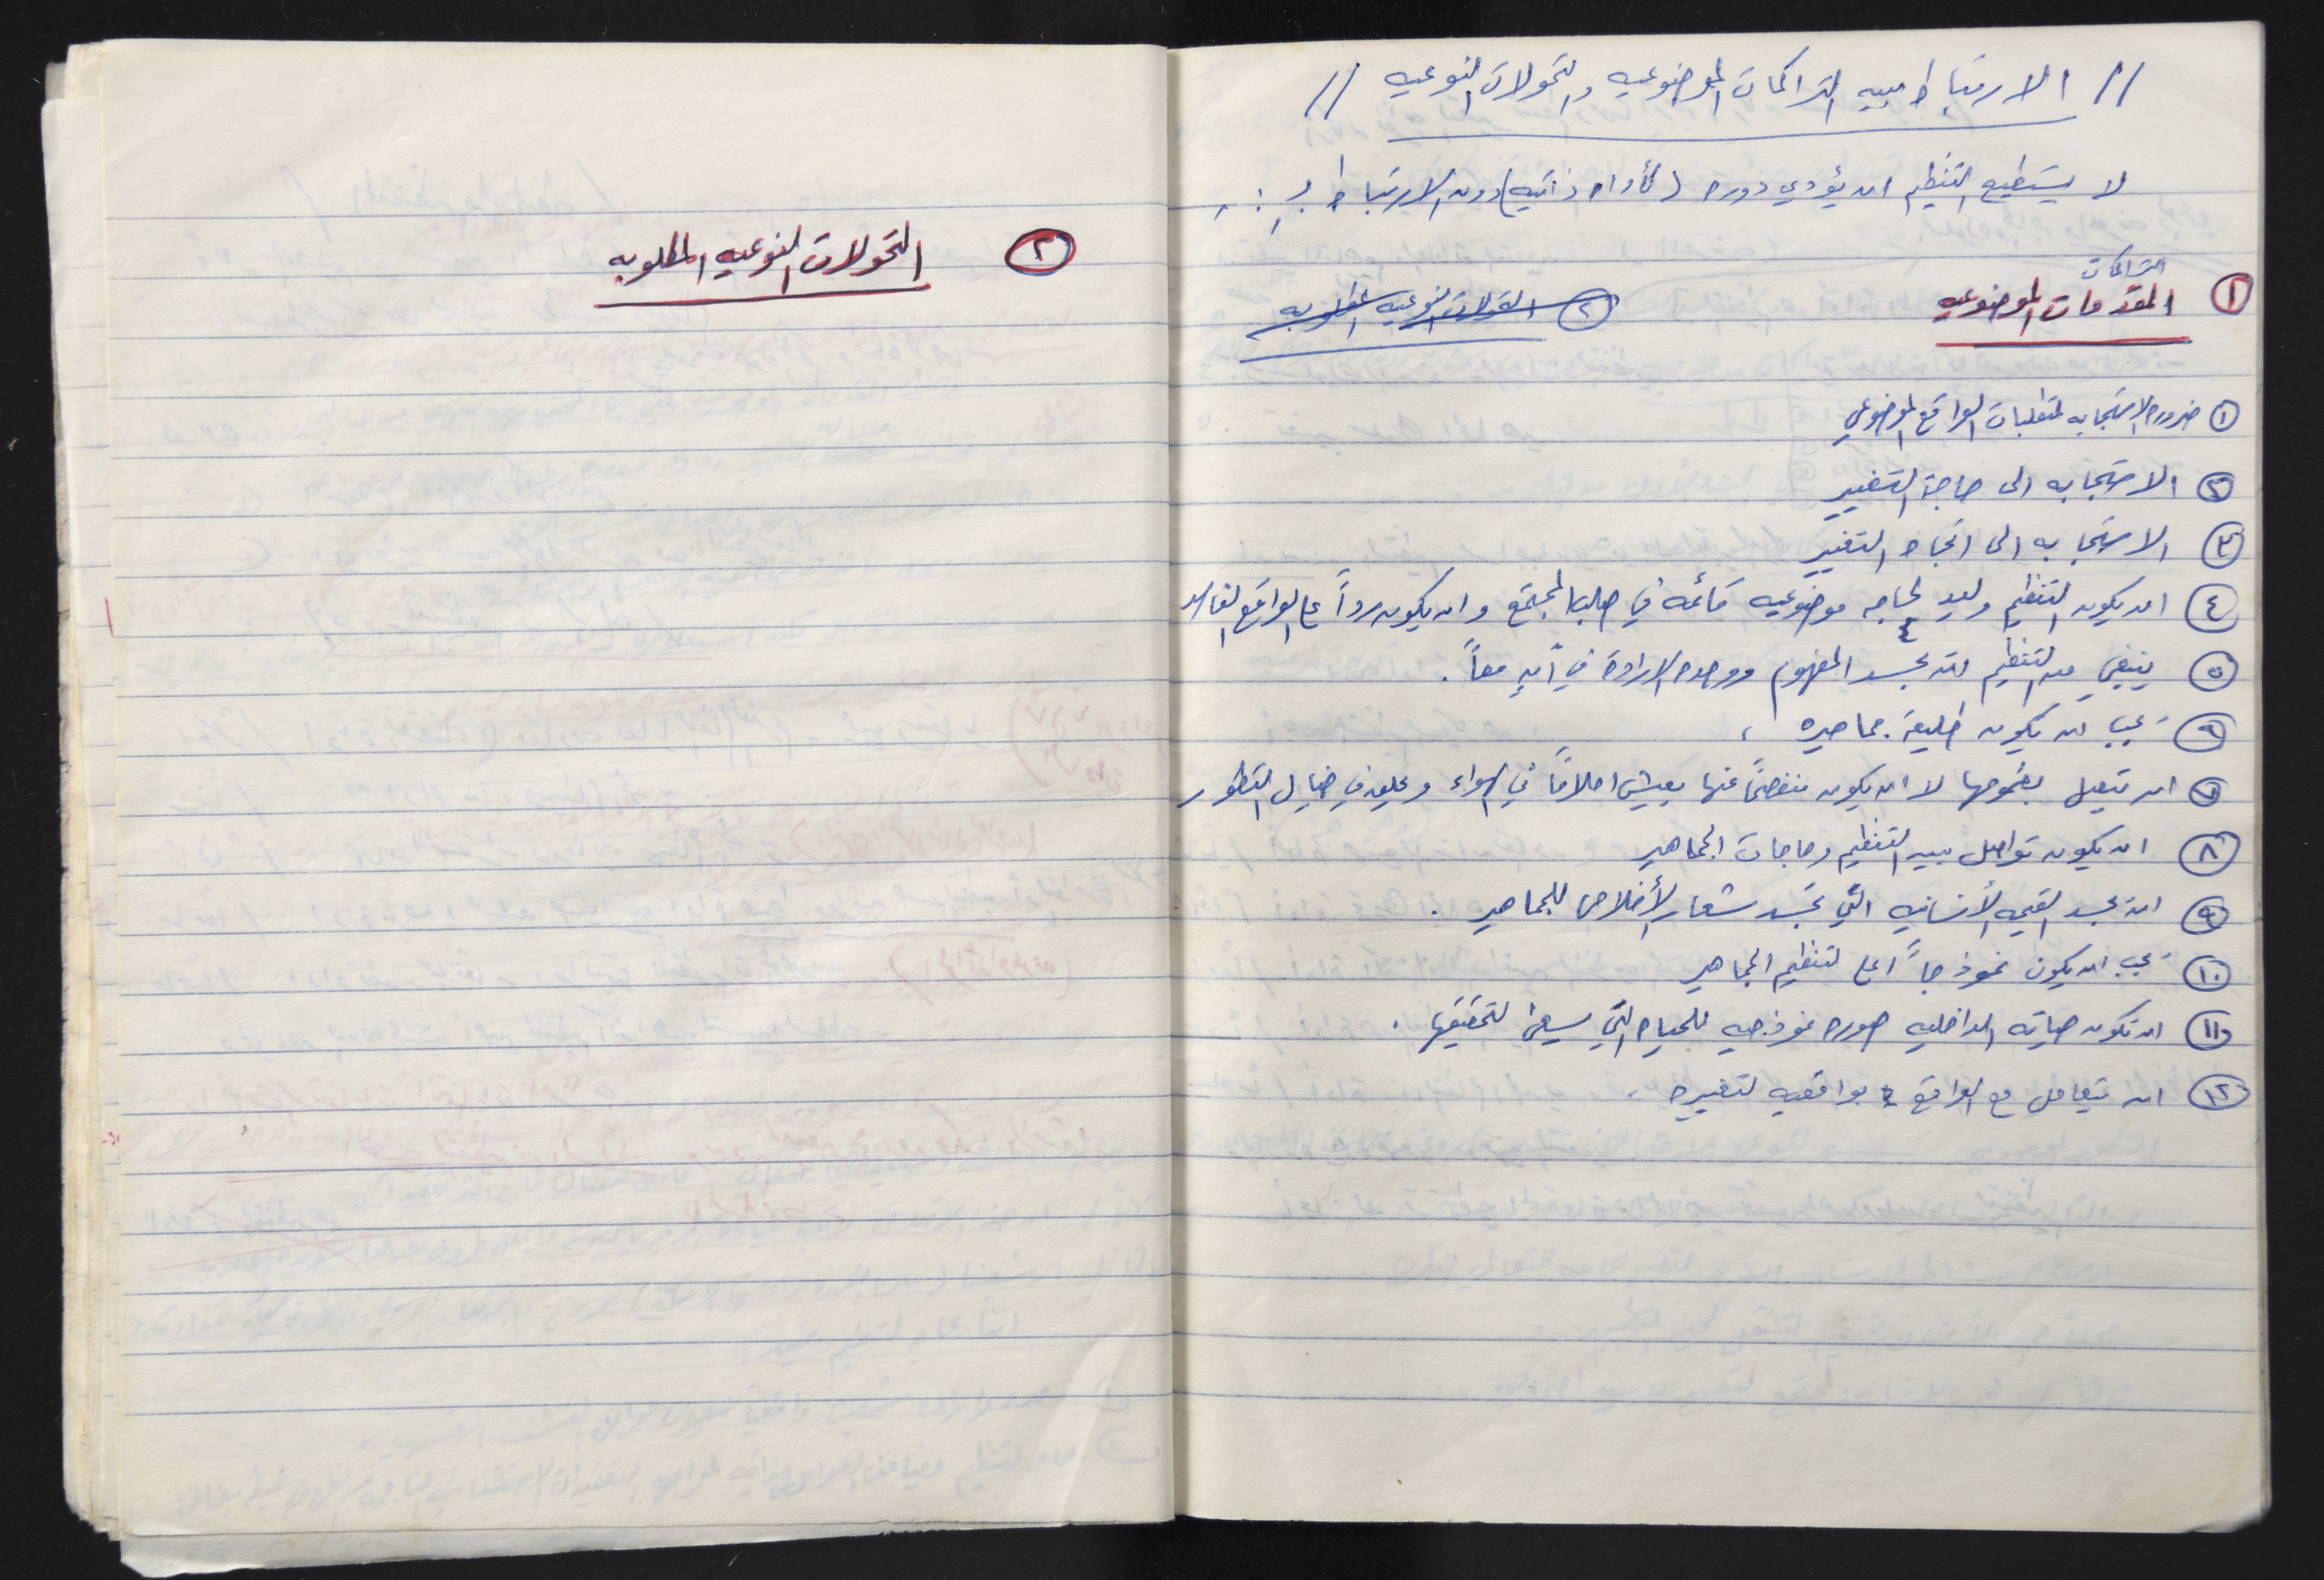 // الارتباط بين التراكمات الموضوعيه والتحولات النوعيه //
لا يستطيع التنظيم ان يؤدي دوره (كأداه ذاتيه) دون الارتباط بـ :
التراكمات
① المقدمات الموضوعيه
② التحولات النوعيه المطلوبه
① ضروره الاستجابه لمتطلبات الواقع الموضوعي
② الاستجابه الى حاجة التغيير
③ الاستجابه الى اتجاه التغيير
④ ان يكون التنظيم وليد لحاجه موضوعيه قائمه في صلب المجتمع وان يكون رداً على الواقع الفاسد
⑤ ينبغي من التنظيم ان يجسد المفهوم ووحده الاراده في آنٍ معاً .
⑥ يجب ان يكون طليعة جماهيره .
⑦ ان يتصل بهمومها لا ان يكون منفصماً عنها يعيش احلاماً في الهواء ويحلق في خيال التطور
⑧ ان يكون تواصل بين التنظيم وحاجات الجماهير
⑨ ان يجسد القيمه الأنسانيه التي تجسد شعار الأخلاص للجماهير .
⑩ يجب ان يكون نموذجاً اعلى لتنظيم الجماهير
⑪ ان تكون حياته الداخليه صوره نموذجيه للحياه التي يسعى لتحقيقها .
⑫ ان يتعامل مع الواقع بواقعيه لتغييره .
② التحولات النوعيه المطلوبه